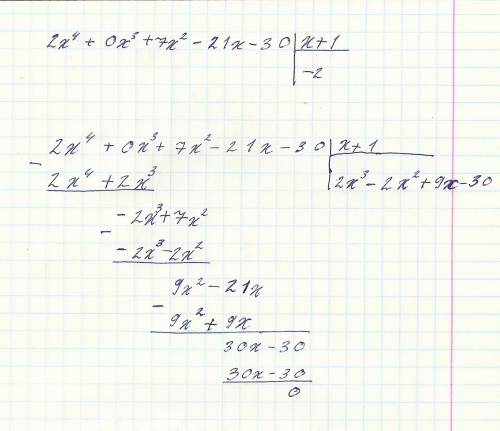 2x⁴ + 0x³ + 7x² - 21x - 30 | x + 1
-2
2x⁴ + 0x³ + 7x² - 21x - 30 | x + 1
- 2x⁴ + 2x³ | 2x³ - 2x² + 9x - 30
- 2x³ + 7x²
- - 2x³ - 2x²
9x² - 21x
- 9x² + 9x
30x - 30
30x - 30
0